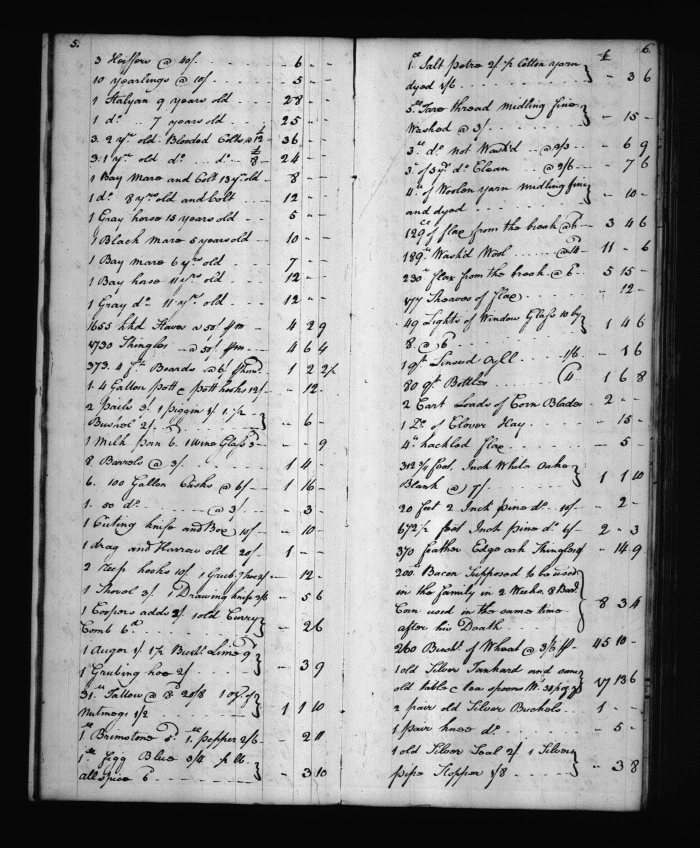 5.
3 Heiffers @ 40/. - 6 - -
10 yearlings @ 10/ - 5 - -
1 Stalyan 9 years old - 28 - -
1 do. .. 7 years old - 25 - -
3. 2 yr. old Blooded Colts @ £12 - 36 - -
3. 1 yr. old do ... do. - £8 - 24 - -
1 Bay Mare and Colt 13 yr. old - 8 - -
1 do. 8 yrs old and colt - 12 - -
1 Gray horse 15 years old - 5 - -
1 Black mare 5 years old - 10 - -
1 Bay mare 6 yrs. old - 7 - -
1 Bay horse 11 yrs old - 12 - -
1 Gray do 11 yrs old - 12 - -
1655 hhd Staves @ 50/ pm - 4 2 9
1730 Shingles @ 50/ pm - 4 6 4
373. 4 ft Boards @ 6/ - 1 2 2½
1. 4 Gallon pott & pott hooks 12/ - - 12 -
2 pails 3. 1 piggin 1/ 1.
Bushel 2/ - - 6 -
1 Milk pan 6. 1 Wine Glass 3 - - - 9
8 Barrels @ 3/ - 1 4 -
6. 100 Gallon Casks @ 6/ - 1 16 -
1. 50 do. @ 3/ - - 3 -
1 Cuting knife and Box 10/ - - 10 -
1 drag and Harrow old 20/ - 1 - -
2 reep hooks 10/ 1 Grub. hoe 2/ - - 12 -
1 Shovel 3/. 1 Drawing knife 2/6 - - 5 6
1 Coopers adds 2/. 1 old Curry
Comb 6d. - - 2 6
1 Auger 1/. 1½ Bushl. Lime 9d
1 Grubing hoe 2/ - - 3 9
31. lb Tallow @ 8d 20/8 1 oz of
Nutmegs 1/2 - 1 1 10
1 lb Brimstone 5d. 1. lb pepper 2/6 - - 2 11
1. lb figg Blue 3/4
all spice 6 - - 3 10
6.
£
1 lb Salt petre 2/ ½ Cotton yarn
dyed 1/6 - - 3 6
5. lb Tare thread midling fine
Washed @ 3/ - - 15 -
3. lb do. not Wash'd @ 2/3 - - 6 9
3 of 3 yd. do Clean @ 2/6 - - 7 6
4. lb of Woolen yarn midling fine
and dyed - - 10 -
129 lb of flax from the break @ 6 - 3 4 6
189. lb Wash'd Wool @ 14 - 11 - 6
230 lb flax from the break @ 6 - 5 15 -
177 Sheaves of flax - - 12 -
49 Lights of Window Glass 10 by
8 @ 6 - 1 4 6
1 qt Linseed Oyll. 1/6 - - 1 6
80 qt Bottles @ 4 - 1 6 8
2 Cart Loads of Corn Blades - 2 - -
1 Do. of Clover Hay - - 15 -
4 lb hackled flax - - 5 -
312½ foot Inch White Oake
Plank @ 7/ - 1 1 10
20 feet 2 Inch pine do. 10/ - - 2 -
672½ foot Inch pine do. 6/ - 2 - 3
370 feather Edge oak Shingles - - 14 9
200 lb Bacon Supposed to be used
in the family in 2 Weeks. 8 Bar.
Corn used in the same time
after his Death - 8 3 4
260 Bushl. of Wheat @ 3/6 - 45 10 -
1 old Silver Tankard and some
old table & tea spoons - 17 13 6
2 pair old Silver Buckels - 1 - -
1 pair knee do. - - 5 -
1 old Silver Seal 2/ 1 Silver
pipe Stopper 1/8 - - 3 8